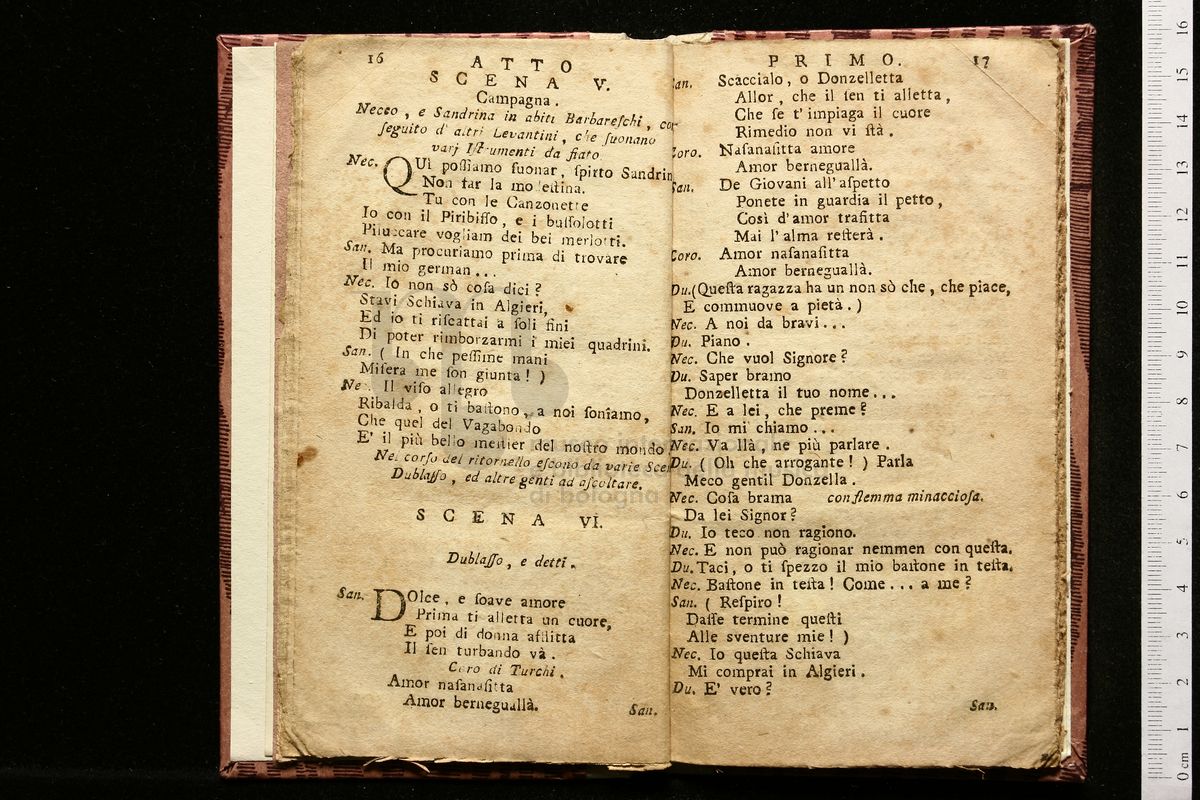 16
ATTO
SCENA V.
Campagna.
Necco, e Sandrina in abiti Barbareſchi, con
ſeguito d'altri Levantini, che ſuonano
varj Iſtrumenti da fiato
Nec. QUì poſſiamo ſuonar, ſpirto Sandrin
Non far la modeſtina.
Tu con le Canzonette
Io con il Piribiſſo, e i buſſolotti
Piluccare vogliam dei bei merlotti.
San. Ma procuriamo prima di trovare
Il mio german...
Nec. Io non sò coſa dici?
Stavi Schiava in Algieri,
Ed io ti riſcattai a ſoli fini
Di poter rimborzarmi i miei quadrini.
San. ( In che peſſime mani
Miſera me ſon giunta! )
Nec. Il viſo allegro
Ribalda, o ti baſtono, a noi ſoniamo,
Che quel del Vagabondo
E' il più bello meſtier del noſtro mondo
Nel corſo del ritornello eſcono da varie Sce
Dublaſſo, ed altre genti ad aſcoltare.
SCENA VI.
Dublaſſo, e detti.
San. DOlce, e ſoave amore
Prima ti alletta un cuore,
E poi di donna afflitta
Il ſen turbando và.
Coro di Turchi.
Amor naſanaſitta
Amor berneguallà.
San.
PRIMO.
17
San. Scaccialo, o Donzelletta
Allor, che il ſen ti alletta,
Che ſe t'impiaga il cuore
Rimedio non vi ſtà.
Coro. Naſanaſitta amore
Amor berneguallà.
San. De Giovani all'aſpetto
Ponete in guardia il petto,
Così d'amor trafitta
Mai l'alma reſterà.
Coro. Amor naſanaſitta
Amor berneguallà.
Du.(Queſta ragazza ha un non sò che, che piace,
E commuove a pietà.)
Nec. A noi da bravi...
Du. Piano.
Nec. Che vuol Signore?
Du. Saper bramo
Donzelletta il tuo nome...
Nec. E a lei, che preme?
San. Io mi chiamo...
Nec. Va llà, ne più parlare.
Du. ( Oh che arrogante! ) Parla
Meco gentil Donzella.
Nec. Coſa brama con flemma minaccioſa.
Da lei Signor?
Du. Io teco non ragiono.
Nec. E non può ragionar nemmen con queſta.
Du. Taci, o ti ſpezzo il mio baſtone in teſta.
Nec. Baſtone in teſta! Come... a me?
San. ( Reſpiro!
Daſſe termine queſti
Alle sventure mie! )
Nec. Io queſta Schiava
Mi comprai in Algieri.
Du. E' vero?
San.
di bologna
0 cm 1 2 3 4 5 6 7 8 9 10 11 12 13 14 15 16